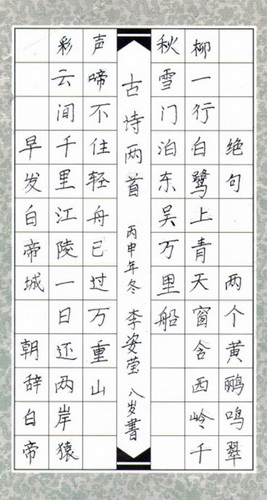 绝句 两个黄鹂鸣翠
柳一行白鹭上青天窗含西岭千
秋雪门泊东吴万里船
古诗两首 丙申年冬 李姿莹 八岁書
早发白帝城 朝辞白帝
彩云间千里江陵一日还两岸猿
声啼不住轻舟已过万重山